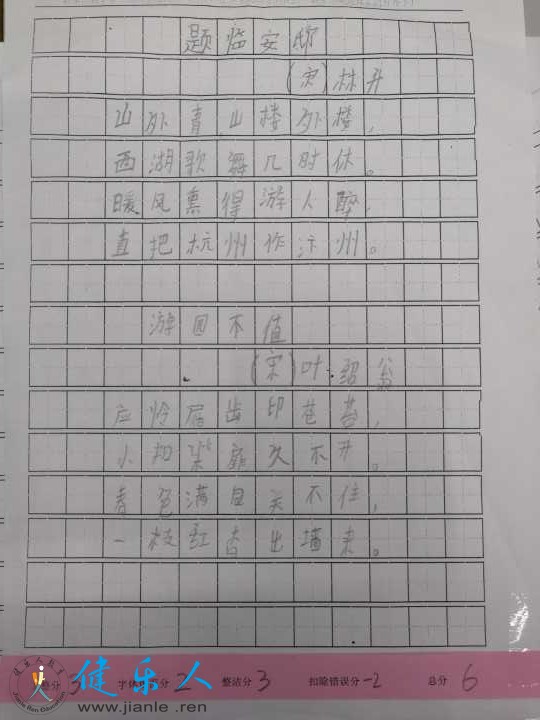 题临安邸
(宋)林升
山外青山楼外楼，
西湖歌舞几时休。
暖风熏得游人醉，
直把杭州作汴州。
游园不值
(宋)叶绍翁
应怜屐齿印苍苔，
小扣柴扉久不开。
春色满园关不住，
一枝红杏出墙来。
分 3 字体 分 2 整洁分 3 扣除错误分 -2 总分 6
健乐人
www.jianle.ren